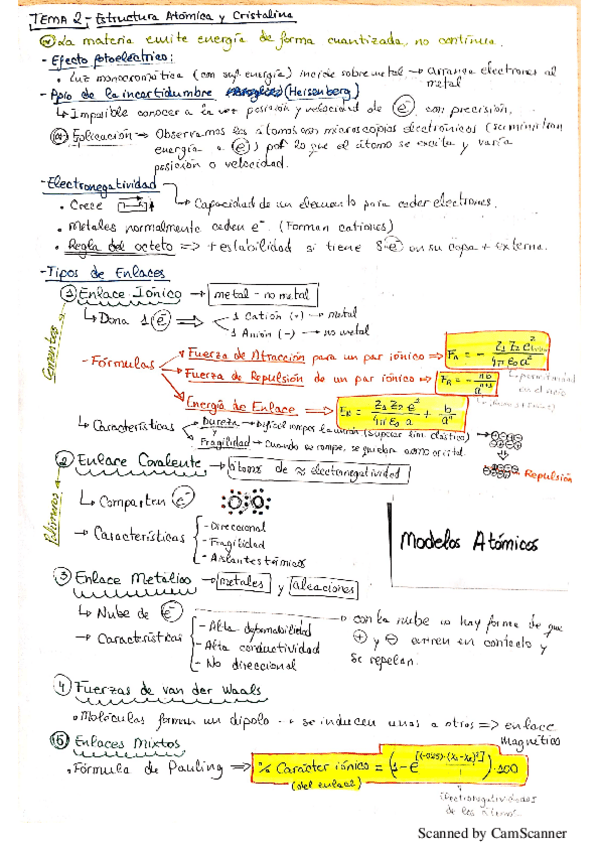 TEMA 2- Estructura Atómica y Cristalina
La materia emite energía de forma cuantizada, no continua.
- Efecto fotoeléctrico:
• Luz monocromática (con suf. energía) incide sobre metal → arranca electrones al metal
- Apio de la incertidumbre (Heisenberg)
↳ Imposible conocer a la vez posición y velocidad de e⁻ con precisión.
Explicación → Observamos los átomos con microscopios electrónicos (suministran
energía a e⁻) por lo que el átomo se excita y varía
posición o velocidad.
- Electronegatividad → Capacidad de un elemento para ceder electrones.
• Crece
• Metales normalmente ceden e⁻. (Forman cationes)
• Regla del octeto => + estabilidad si tiene 8 e⁻ en su capa + externa.
- Tipos de Enlaces
1 Enlace Iónico → metal - no metal
↳ Dona 1 e⁻ => 1 Catión (+) → metal
1 Anión (-) → no metal
- Fórmulas
Fuerza de Atracción para un par iónico => F_A = - Z₁ Z₂ e² / 4π ε₀ a²
Fuerza de Repulsión de un par iónico => F_R = - nb / aⁿ⁺¹
en el vacío
Energía de Enlace => E_R = Z₁ Z₂ e² / 4π ε₀ a + b / aⁿ
↳ Características
Dureza → Difícil romper la unión (superar lím. elástico)
y
Fragilidad → Cuando se rompe, se quiebra como cristal.
Repulsión
2 Enlace Covalente → átomos de ≈ electronegatividad
↳ Comparten e⁻
→ Características
- Direccional
- Fragilidad
- Aislantes térmicos
Modelos Atómicos
3 Enlace Metálico → metales y aleaciones
↳ Nube de e⁻ → con la nube no hay forma de que
⊕ y ⊖ entren en contacto y
se repelan.
→ Características
- Alta deformabilidad
- Alta conductividad
- No direccional
4 Fuerzas de van der Waals
• Moléculas forman un dipolo → se inducen unas a otras => enlace
magnético
5 Enlaces Mixtos
• Fórmula de Pauling => % Carácter iónico = (1 - e^[(-0.25)·(X₁-X₂)²])·100
(del enlace)
Electronegatividades
de los átomos.
Scanned by CamScanner